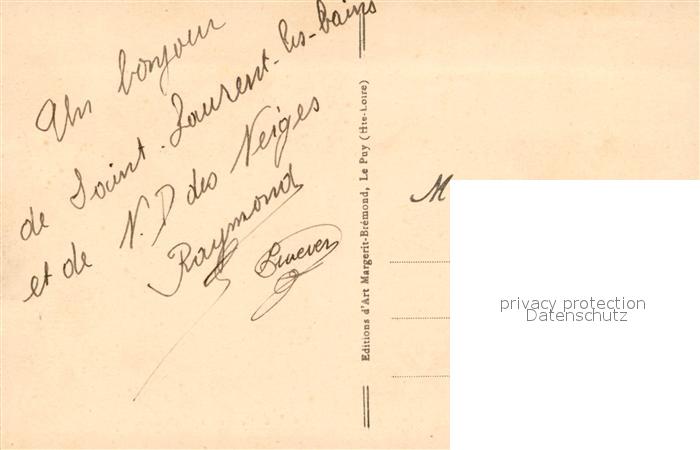 Un bonjour
de Saint-Laurent-les-bains
et de N.D des Neiges
Raymond
Editions d'Art Margerit-Brémond, Le Puy (Hte-Loire)
M
privacy protection
Datenschutz